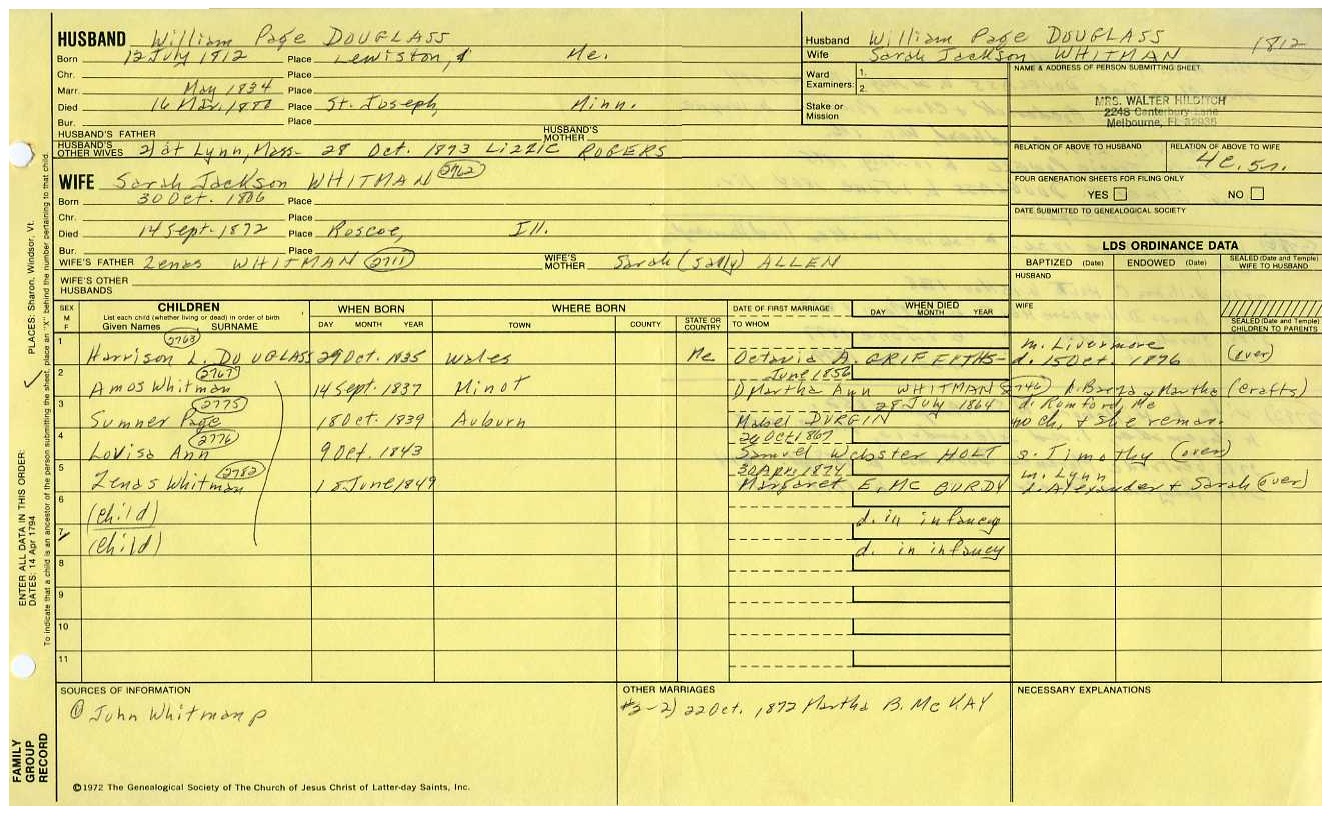 HUSBAND William Page DOUGLASS
Born 12 July 1812 Place Lewiston, Me.
Chr. Place
Marr. May 1834 Place
Died 16 Mar. 1880 Place St. Joseph, Minn.
Bur. Place
HUSBAND'S FATHER HUSBAND'S MOTHER
HUSBAND'S OTHER WIVES 2) at Lynn, Mass- 28 Oct. 1873 Lizzie ROGERS
WIFE Sarah Jackson WHITMAN 2762
Born 30 Oct. 1806 Place
Chr. Place
Died 14 Sept. 1872 Place Roscoe, Ill.
Bur. Place
WIFE'S FATHER Zenas WHITMAN 2711 WIFE'S MOTHER Sarah (Sally) ALLEN
WIFE'S OTHER HUSBANDS
Husband William Page DOUGLASS 1812
Wife Sarah Jackson WHITMAN
Ward Examiners: 1.
2.
Stake or Mission
NAME & ADDRESS OF PERSON SUBMITTING SHEET
MRS. WALTER HILDITCH
2248 Canterbury Lane
Melbourne, FL 32935
RELATION OF ABOVE TO HUSBAND RELATION OF ABOVE TO WIFE
4c. 5r.
FOUR GENERATION SHEETS FOR FILING ONLY
YES NO
DATE SUBMITTED TO GENEALOGICAL SOCIETY
LDS ORDINANCE DATA
BAPTIZED (Date) ENDOWED (Date) SEALED (Date and Temple) WIFE TO HUSBAND
HUSBAND
WIFE
SEALED (Date and Temple) CHILDREN TO PARENTS
SEX M F CHILDREN WHEN BORN WHERE BORN DATE OF FIRST MARRIAGE WHEN DIED
List each child (whether living or dead) in order of birth
Given Names SURNAME DAY MONTH YEAR TOWN COUNTY STATE OR COUNTRY TO WHOM DAY MONTH YEAR
1 2763 m. Livermore
Harrison L. DOUGLASS 29 Oct. 1835 Wales Me Octavia A. GRIFFITHS- d. 15 Oct. 1876 (over)
2 2767 June 1856
Amos Whitman 14 Sept. 1837 Minot 1) Martha Ann WHITMAN 2746) d. Barza & Martha (Crafts)
3 2775 28 July 1864 d. Rumford, Me
Sumner Page 18 Oct. 1839 Auburn Mabel DURGIN no ch, & She remar.
4 2776 20 Oct 1867
Lovisa Ann 9 Oct. 1843 Samuel Webster HOLT s. Timothy (over)
5 2782 30 Apr. 1874 m. Lynn
Zenas Whitman 18 June 1849 Margaret E. MC CURDY d. Alexander & Sarah (over)
6 (child) d. in infancy
7 (child) d. in infancy
8
9
10
11
SOURCES OF INFORMATION
① John Whitman p
OTHER MARRIAGES
#2-2) 22 Oct. 1872 Martha B. McKAY
NECESSARY EXPLANATIONS
©1972 The Genealogical Society of The Church of Jesus Christ of Latter-day Saints, Inc.
FAMILY GROUP RECORD
ENTER ALL DATA IN THIS ORDER:
DATES: 14 Apr 1794
PLACES: Sharon, Windsor, Vt.
To indicate that a child is an ancestor of the person submitting the sheet, place an "X" behind the number pertaining to that child.